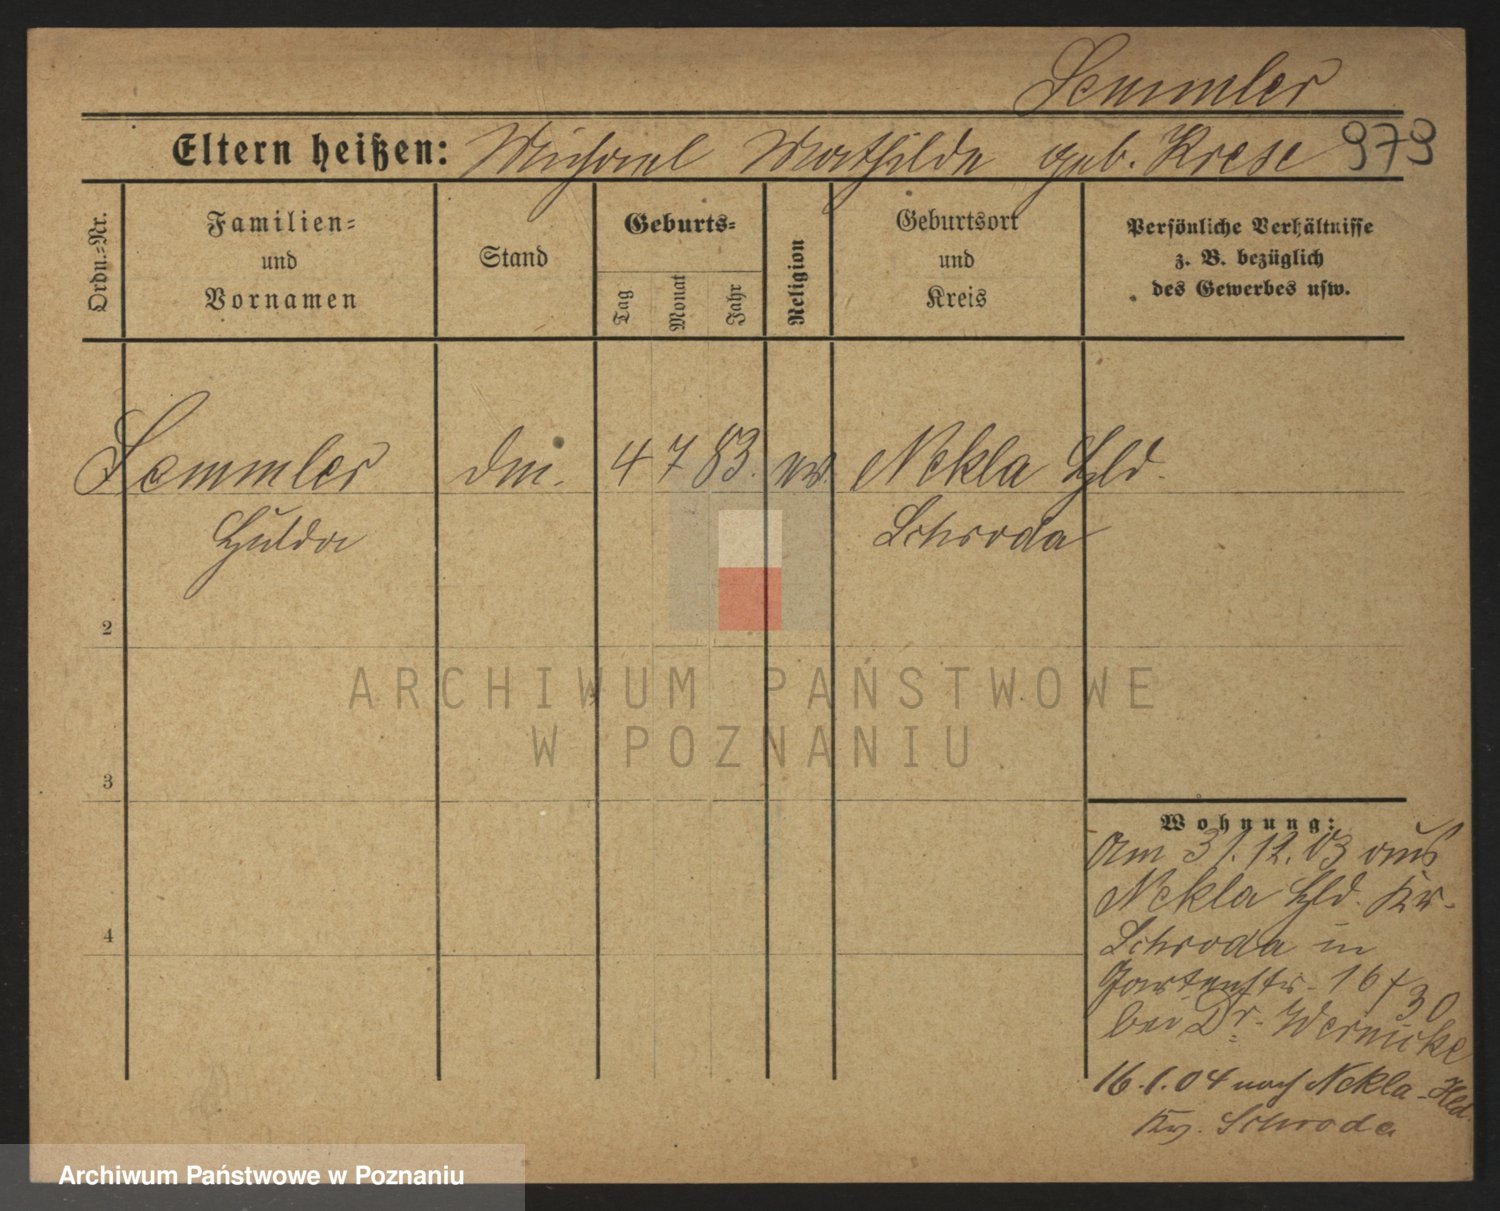 Semmler
Eltern heißen: Michael Mathilde geb. Krese 979
Ordn.-Nr.
Familien-
und
Vornamen
Stand
Geburts-
Tag
Monat
Jahr
Religion
Geburtsort
und
Kreis
Persönliche Verhältnisse
z. B. bezüglich
des Gewerbes usw.
Semmler
Hulda
4 7 83. ev.
Nekla Hld.
Schroda
2
3
4
Wohnung:
Am 31.12.03 aus
Nekla Hld. Kr.
Schroda in
Gartenstr. 16
bei Dr. Wernicke
16.1.04 nach Nekla-Hld.
Kr. Schroda
ARCHIWUM PAŃSTWOWE
W POZNANIU
Archiwum Państwowe w Poznaniu